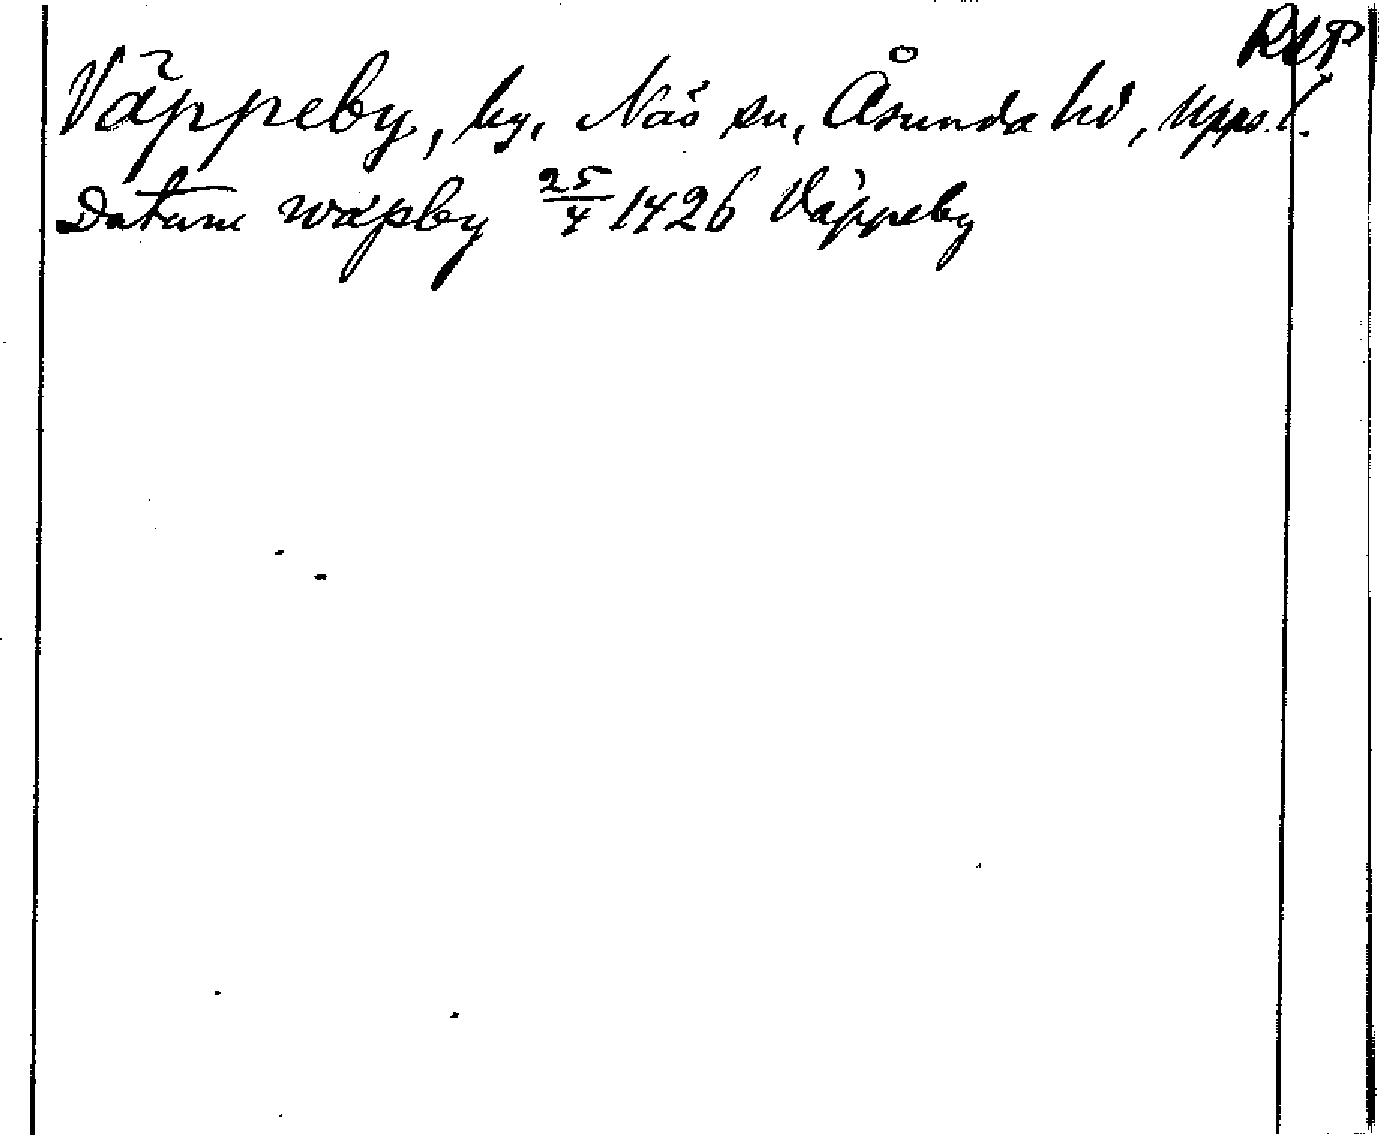 RAP
Väppeby, by, Näs sn, Åsunda hd, Upps. l.
Datum wäpby 25/4 1426 Väppeby